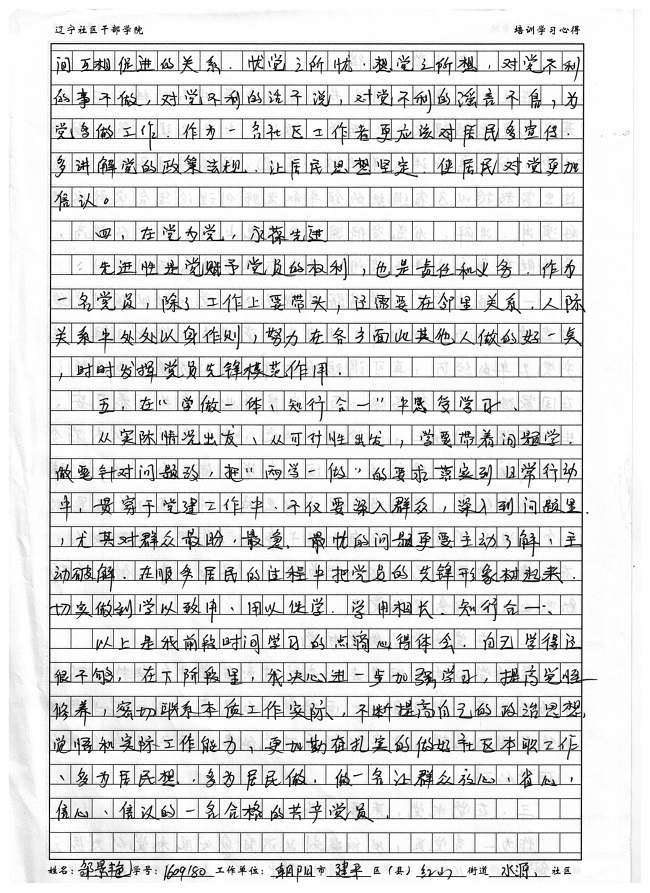 辽宁社区干部学院 培训学习心得
间互相促进的关系。忧党之所忧,想党之所想,对党不利
的事不做,对党不利的话不说,对党不利的谣言不信,为
党多做工作。作为一名社区工作者更应该对居民多宣传.
多讲解党的政策法规、让居民思想坚定、使居民对党更加
信认。
四、在党为党,永葆先进
先进性是党赋予党员的权利,也是责任和义务。作为
一名党员,除了工作上要带头,还需要在邻里关系、人际
关系中处处以身作则,努力在各方面比其他人做的好一点
,时时发挥党员先锋模范作用.
五、在“学做一体、知行合一”中思复学习、
从实际情况出发、从可行性出发,学要带着问题学.
做要针对问题改,把“两学一做”的要求落实到日常行动
中,贯穿于党建工作中.不仅要深入群众,深入到问题里.
,尤其对群众最盼、最急、最忧的问题更要主动了解、主
动破解.在服务居民的过程中把党员的先锋形象树起来.
切实做到学以致用、用以促学、学用相长、知行合一、
以上是我前段时间学习的点滴心得体会.自己学得还
很不够,在下阶段里,我决心进一步加强学习,提高党性
修养,密切联系本质工作实际,不断提高自己的政治思想,
觉悟和实际工作能力,更加勤在扎实的做好社区本职工作
、多为居民想.多为居民做,做一名让群众放心,省心,
信心、信认的一名合格的共产党员.
姓名:邹景艳 学号:1609180 工作单位:朝阳市 建平 区(县)红山 街道 水源 社区